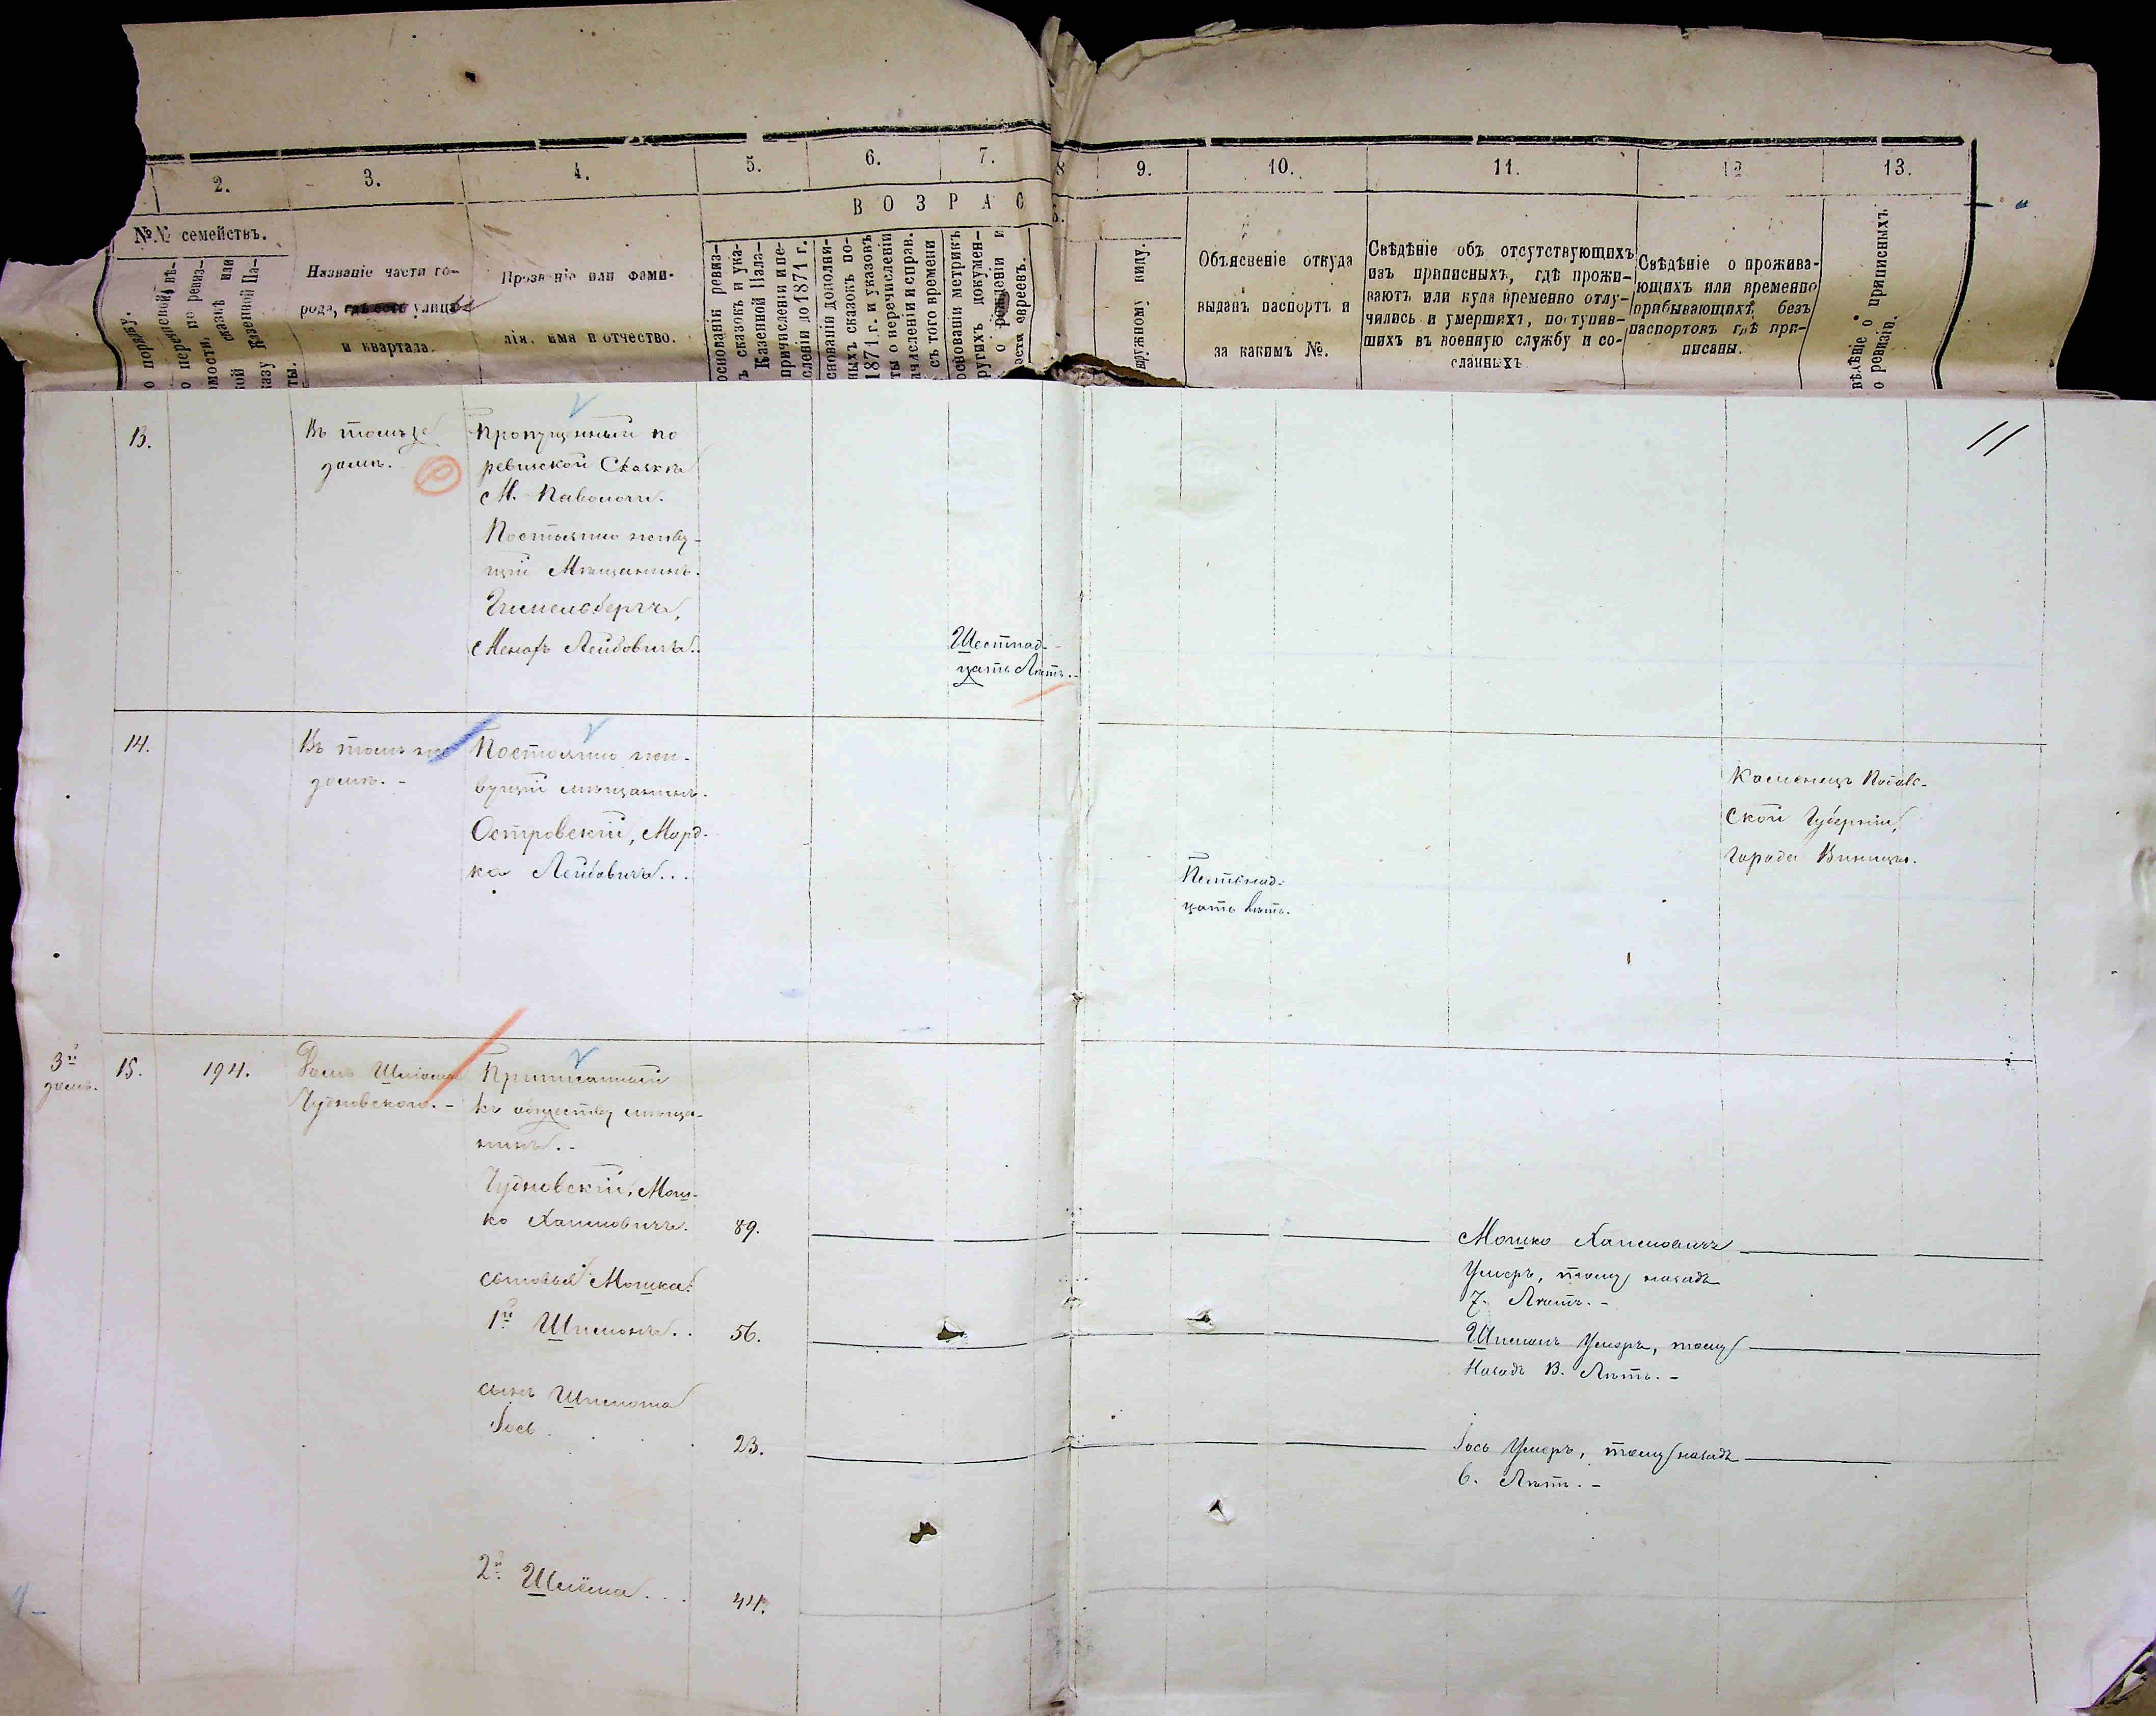 2. 3. 4. 5. 6. 7. 8 9. 10. 11. 12 13.
В О З Р А С
№№ семействъ.
о порядку.
Названіе части го-
рода, улицы
и квартала.
Прозв ніе или фами-
лія, имя и отчество.
основаніи ревиз-
ъ сказокъ и ука-
Казенной Пала-
причисленіи и пе-
сленіи до 1871 г.
снованіи дополни-
ныхъ сказокъ по-
1871 г. и указовъ
ты о перечисленіи
ачисленіи и справ.
съ того времени
основаніи метрикъ
ругихъ докумен-
о рожденіи и
ости евреевъ.
аружному виду.
Объясненіе откуда
выданъ паспортъ и
за какимъ №.
Свѣдѣніе объ отсутствующихъ
изъ приписныхъ, гдѣ прожи-
ваютъ или куда временно отлу-
чились и умершихъ, поступив-
шихъ въ военную службу и со-
сланныхъ
Свѣдѣніе о прожива-
ющихъ или временно
прибывающихъ безъ
паспортовъ гдѣ при-
писаны.
вѣдѣніе о приписныхъ
о ревизіи.
11
13.
Въ томъ же
домѣ.
Пропущенный по
ревизской Сказкѣ
М. Паволочи.
Постоянно живу-
щій Мѣщанинъ.
Лейбовичъ..
Шестнад-
цать Лѣтъ.-
14.
Въ томъ же
домѣ. -
Постоянно жи-
вущій мѣщанинъ.
Островскій, Морд-
ко Лейбовичъ...
Пятнад-
цать лѣтъ.
Каменецъ Подоль-
ской Губерніи,
города Виницы.
3й
домъ.
15.
194.
Домъ Шлёма
Чудновского. -
Приписанный
къ обществу мѣща-
нинъ. -
Чудновскій, Мош-
ко Хаимовичъ.
89.
Мошко Хаимовичъ
Умеръ, тому назадъ
7. Лѣтъ. -
сыновья Мошка:
1й Шимонъ..
56.
Шимонъ Умеръ, тому
Назадъ 13. Лѣтъ. -
сынъ Шимона
Іось.
23.
Іось Умеръ, тому назадъ
6. Лѣтъ. -
2й Шлёма...
44.